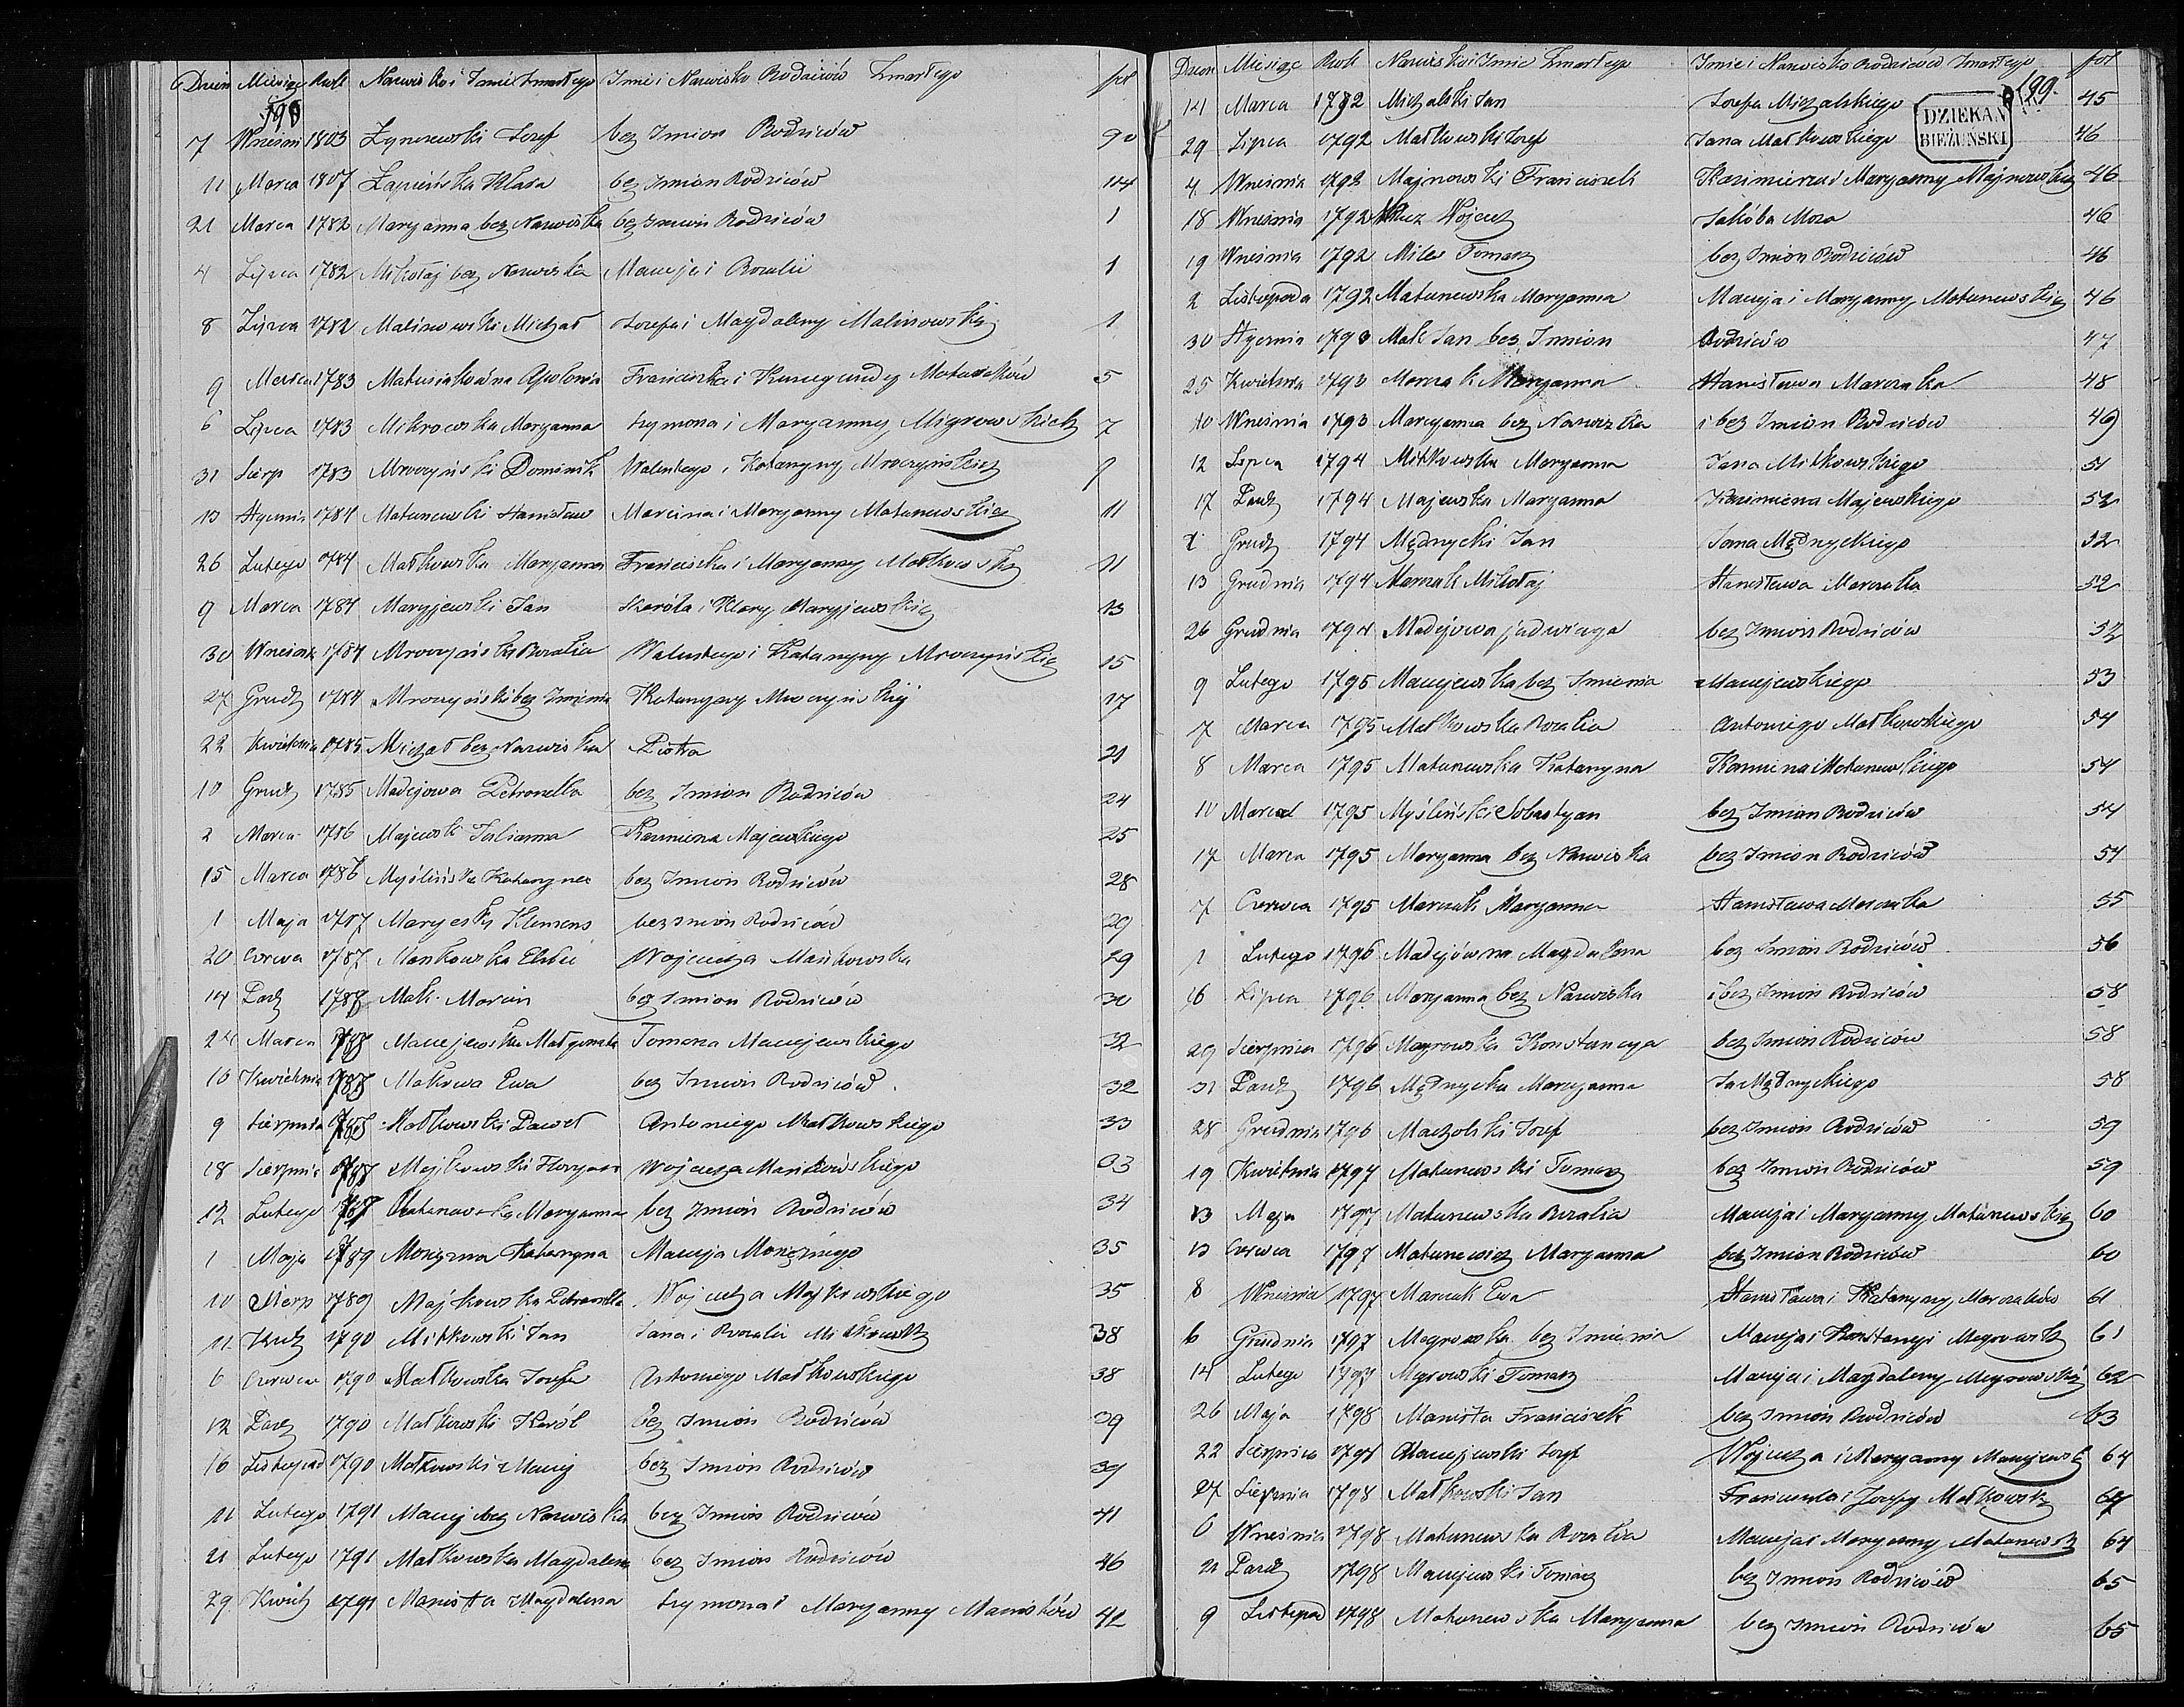 Dzień Miesiąc Rok Nazwisko i Imie Zmarłego Imie i Nazwisko Rodziców Zmarłego fol
198
7 Wrześni 1803 Żynszewski Józef bez Imion Rodziców 90
11 Marca 1807 Łapińska Klara bez Imion Rodziców 114
21 Marca 1782 Maryanna bez Nazwiska bez Imion Rodziców 1
4 Lipca 1782 Mikołaj bez Nazwiska Macieja i Rozalii 1
8 Lipca 1782 Malinowski Michał Józefa i Magdaleny Malinowskich 1
9 Marca 1783 Matusiakówna Apolonia Franciszka i Kunegundy Matusiaków 5
6 Lipca 1783 Mikrowska Maryanna Szymona i Maryanny Migrowskich 7
31 Sierp 1783 Mroczyński Dominik Walentego i Katarzyny Mroczyńskich 9
13 Stycznia 1784 Matunewski Stanisław Marcina i Maryanny Matunewskich 11
26 Lutego 1784 Małkowska Maryanna Franciszka i Maryanny Małkowskich 11
9 Marca 1784 Maryjewski Jan Karóla i Klary Maryjewskich 13
30 Wrześni 1784 Mroczyńska Rozalia Walentego i Katarzyny Mroczyńskich 15
27 Grudz 1784 Mroczyński bez Imienia Katarzyny Mroczyńskiej 17
22 Kwietnia 1785 Michał bez Nazwiska Piotra 21
10 Grudz 1785 Madejowa Petronella bez Imion Rodziców 24
2 Marca 1786 Majewsk Julianna Kazimierza Majewskiego 25
15 Marca 1786 Myślińska Katarzyna bez Imion Rodziców 28
1 Maja 1787 Klemens bez Imion Rodziców 29
20 Czerwca 1787 Mankowska Elżbie Wojciecha Mańkowska 29
14 Paźdz 1788 Mak Marcin bez Imion Rodziców 30
Marca 1788 Maciejewska Małgorzata Tomasza Maciejewskiego 32
10 Kwietnia 1788 Makowa Ewa bez Imion Rodziców 32
9 Sierpnia 1788 Małkowski Paweł Antoniego Małkowskiego 33
18 Sierpnia 1788 Majkowski Floryan Wojciecha Mańkowskiego 33
12 Lutego Matunewska Maryanna bez Imion Rodziców 34
1 Maja 1789 Katarzyna Macieja 35
10 Sierp 1789 Majkowska Petronella Wojciecha Majkowskiego 35
11 1790 Mitkowski Jan Jana i Rozalii Mitkowsk 38
6 Czerwca 1790 Małkowska Józefa Antoniego Małkowskiego 38
12 Paźdz 1790 Małkowski Karól bez Imion Rodziców 39
16 Listopad 1790 Małkowski Maciej bez Imion Rodziców 39
11 Lutego 1791 Maciej bez Nazwiska bez Imion Rodziców 41
21 Lutego 1791 Małkowska Magdalena bez Imion Rodziców 46
29 Kwietn 1791 Manista Magdalena Szymona i Maryanny Manistów 42
Dzien Miesiąc Rok Nazwisko i Imie Zmarłego Imie i Nazwisko Rodziców Zmarłego fol
199
DZIEKAN BIEŻUŃSKI
14 Marca 1792 Michalski Jan Józefa Michalskiego 45
29 Lipca 1792 Małkowski Józef Jana Małkowskiego 46
4 Wrzesnia 1792 Majnowski Franciszek Kazimierza i Maryanny Majnowskich 46
18 Wrzesnia 1792 Wojciech Jakóba 46
19 Wrzesnia 1792 Miler Tomasz bez Imion Rodziców 46
2 Listopada 1792 Matunewska Maryanna Macieja i Maryanny Matunewskich 46
30 Stycznia 1793 Mak Jan bez Imion Rodziców 47
25 Kwietnia 1793 Marczak Maryanna Stanisława Marczaka 48
10 Wrzesnia 1793 Maryanna bez Nazwiska i bez Imion Rodziców 49
12 Lipca 1794 Mitkowska Maryanna Jana Mitkowskiego 51
17 Paźdz 1794 Majewska Maryanna Kazimierza Majewskiego 52
1 Grudz 1794 Mędrzycki Jan Jana Mędrzyckiego 52
13 Grudnia 1794 Marczak Mikołaj Stanisława Marczaka 52
26 Grudnia 1794 Madejowa Jadwiega bez Imion Rodziców 52
9 Lutego 1795 Maciejewska bez Imienia Maciejewskiego 53
7 Marca 1795 Małkowska Rozalia Antoniego Małkowskiego 54
8 Marca 1795 Matunewska Katarzyna Matunewskiego 54
10 Marca 1795 Myśliński Sebastyan bez Imion Rodziców 54
17 Marca 1795 Maryanna bez Nazwiska bez Imion Rodziców 54
7 Czerwca 1795 Marczak Maryanna Stanisława Marczaka 55
1 Lutego 1796 Madejówna Magdalena bez Imion Rodziców 56
16 Lipca 1796 Maryanna bez Nazwiska i bez Imion Rodziców 58
29 Sierpnia 1796 Megrowska Konstancya bez Imion Rodziców 58
31 Paźdz 1796 Mędrzycka Maryanna Ja Mędrzyckiego 58
28 Grudnia 1796 Józef bez Imion Rodziców 59
19 Kwietnia 1797 Matunewski Tomasz bez Imion Rodziców 59
13 Maja 1797 Matunewska Rozalia Macieja i Maryanny Matunewskich 60
13 Czerwca 1797 Matunewicz Maryanna bez Imion Rodziców 60
8 Wrzesnia 1797 Marczak Ewa Stanisława i Katarzyny Marczaków 61
6 Grudnia 1797 Megrowska bez Imienia Macieja i Konstancyi Megrowsk 61
14 Lutego Megrowski Tomasz Macieja i Magdaleny Megrowskich 62
26 Maja 1798 Manista Franciszek bez Imion Rodziców 63
22 Sierpnia 1798 Maciejewski Józef Wojciecha i Maryanny Maciejewsk 64
27 Sierpnia 1798 Małkowski Jan Franciszka i Józefy Małkowsk 64
6 Wrzesnia 1798 Matunewska Rozalia Macieja i Maryanny Matunewsk 64
21 Paźdz 1798 Maciejewski Tomasz bez Imion Rodziców 65
9 Listopad 1798 Matunewska Maryanna bez Imion Rodziców 65